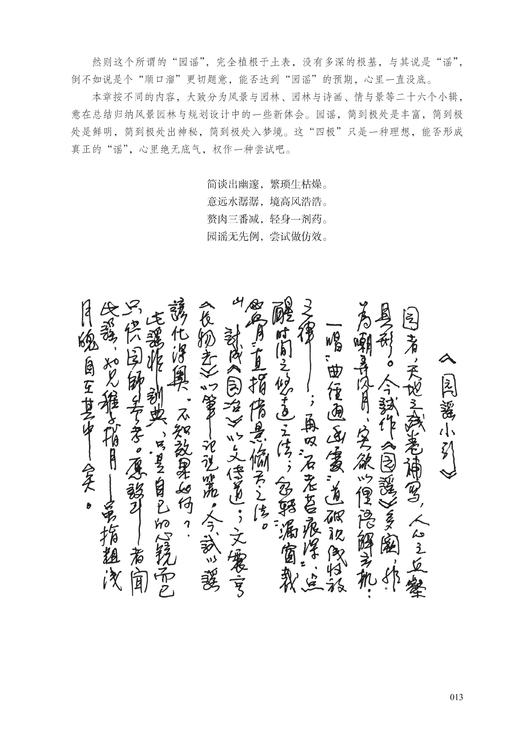 然则这个所谓的“园谣”，完全植根于土表，没有多深的根基，与其说是“谣”，
倒不如说是个“顺口溜”更切题意，能否达到“园谣”的预期，心里一直没底。
本章按不同的内容，大致分为风景与园林、园林与诗画、情与景等二十六个小辑，
意在总结归纳风景园林与规划设计中的一些新体会。园谣，简到极处是丰富，简到极
处是鲜明，简到极处出神秘，简到极处入梦境。这“四极”只是一种理想，能否形成
真正的“谣”，心里绝无底气，权作一种尝试吧。
简谈出幽邃，繁琐生枯燥。
意远水潺潺，境高风浩浩。
赘肉三番减，轻身一剂药。
园谣无先例，尝试做仿效。
《园谣小引》
园者，天地之残卷补写，人心之丘壑
具形。今試作《園謡》多闋，非
为嘲弄风月，实欲以俚语解玄机：
一唱“曲径通幽處”道破視线收放
之律——；再叹“石老苔痕深”点
醒時间之造法；忽转“漏窗裁
皆月”直指借景偷天之法。
計成《园冶》以文传道；文震亨
《长物志》以筆记说器。今试以謡
諺化深奥，不知效果如何？
此謡非訓典，只是自己的心镜而已
只供园師参考。愿設計者闻
此謡，如兄稚子指月——虽指粗浅
月魄自在其中矣。
013